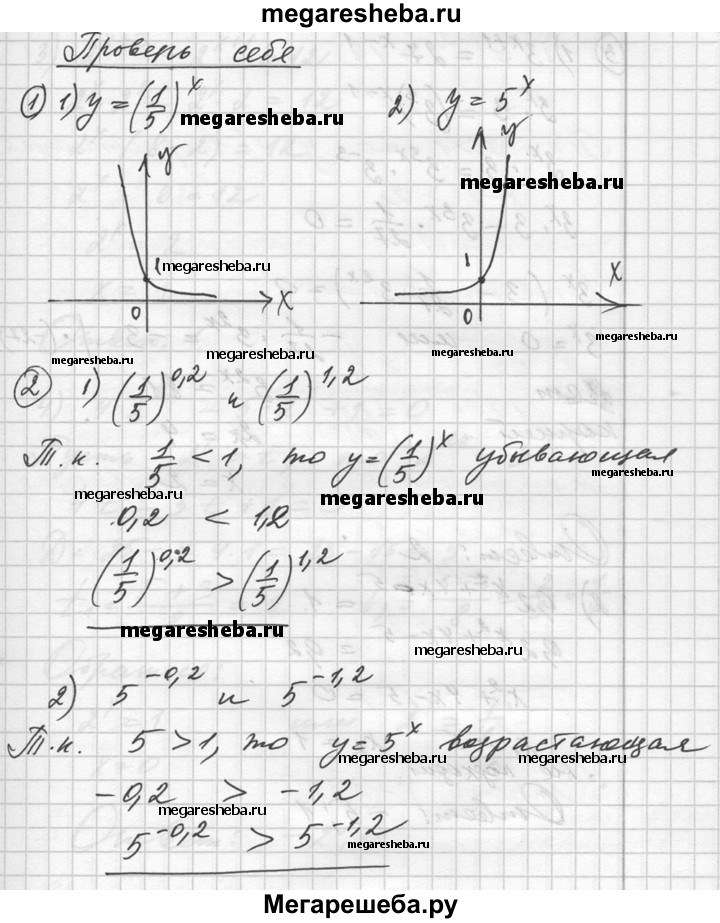 megaresheba.ru
Проверь себя
① 1) y = (1/5)^x 2) y = 5^x
megaresheba.ru
y y
megaresheba.ru
1 megaresheba.ru 1 x
0 x 0
megaresheba.ru
megaresheba.ru megaresheba.ru megaresheba.ru
② 1) (1/5)^0,2 и (1/5)^1,2
Т.к. 1/5 < 1, то y = (1/5)^x убывающая
megaresheba.ru megaresheba.ru megaresheba.ru
0,2 < 1,2
(1/5)^0,2 > (1/5)^1,2
megaresheba.ru megaresheba.ru
2) 5^-0,2 и 5^-1,2
Т.к. 5 > 1, то y = 5^x возрастающая
megaresheba.ru megaresheba.ru
-0,2 > -1,2
megaresheba.ru
5^-0,2 > 5^-1,2
megaresheba.ru
Мегарешеба.ру